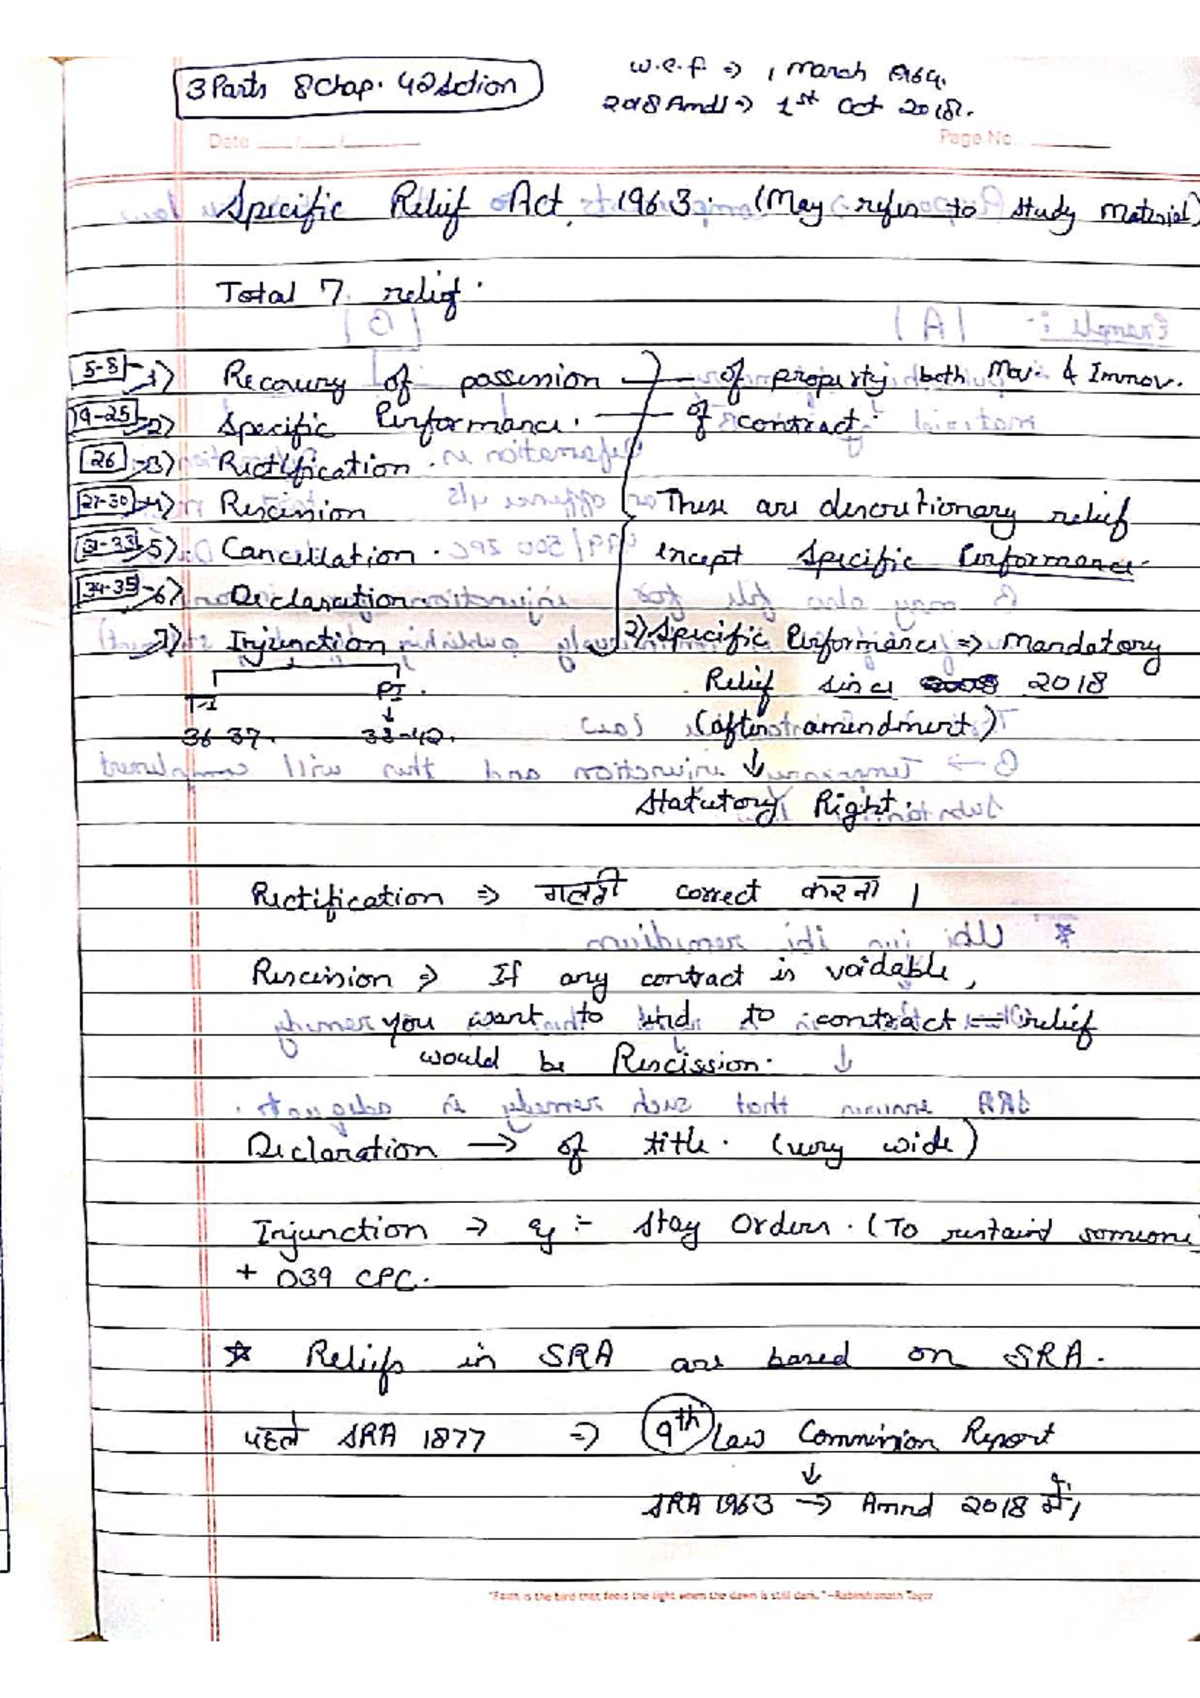 3 Parts 8 Chap. 42 Section
w.e.f. ⇒ 1 March 1964.
2018 Amd ⇒ 1st Oct 2018.
Date ___/___/___
Page No. ___
Specific Relief Act, 1963. (May refer to study material)
Total 7 relief.
5-8 1) Recovery of possession — of property both Mov. & Immov.
9-25 2) Specific Performance. — of contract.
26 3) Rectification.
27-30 4) Rescission These are discretionary relief
31-33 5) Cancellation. except Specific Performance.
34-35 6) Declaration.
7) Injunction 2) Specific Performance ⇒ Mandatory
T.I PI. Relief since 2018
36-37. 38-42. (after amendment)
↓
Statutory Right.
Rectification ⇒ गलती correct करना।
Rescission ⇒ If any contract is voidable,
you want to end to contract — relief
would be Rescission.
Declaration → of title. (very wide)
Injunction → eg :- Stay Orders. (To restraint someone
+ O39 CPC.
☆ Reliefs in SRA are based on SRA.
पहले SRA 1877 ⇒ 9th Law Commission Report
↓
SRA 1963 → Amnd 2018 में।
"Faith is the bird that feels the light when the dawn is still dark." –Rabindranath Tagor